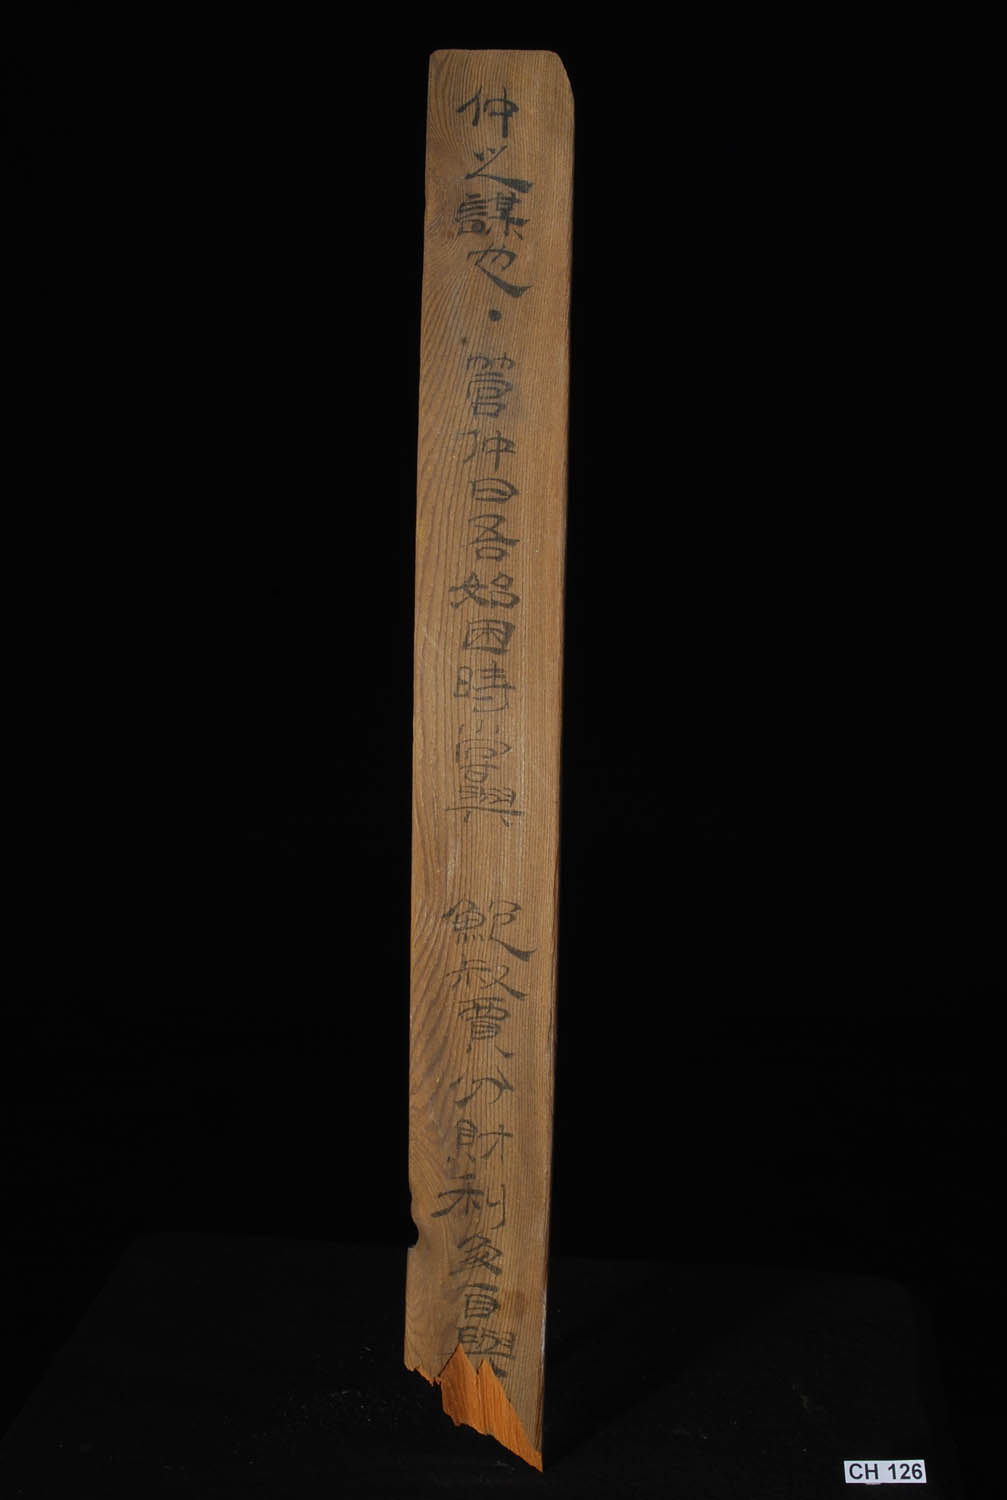 仲之謀也·管仲曰吾始困時嘗與鮑叔賈分財利多自與
CH 126